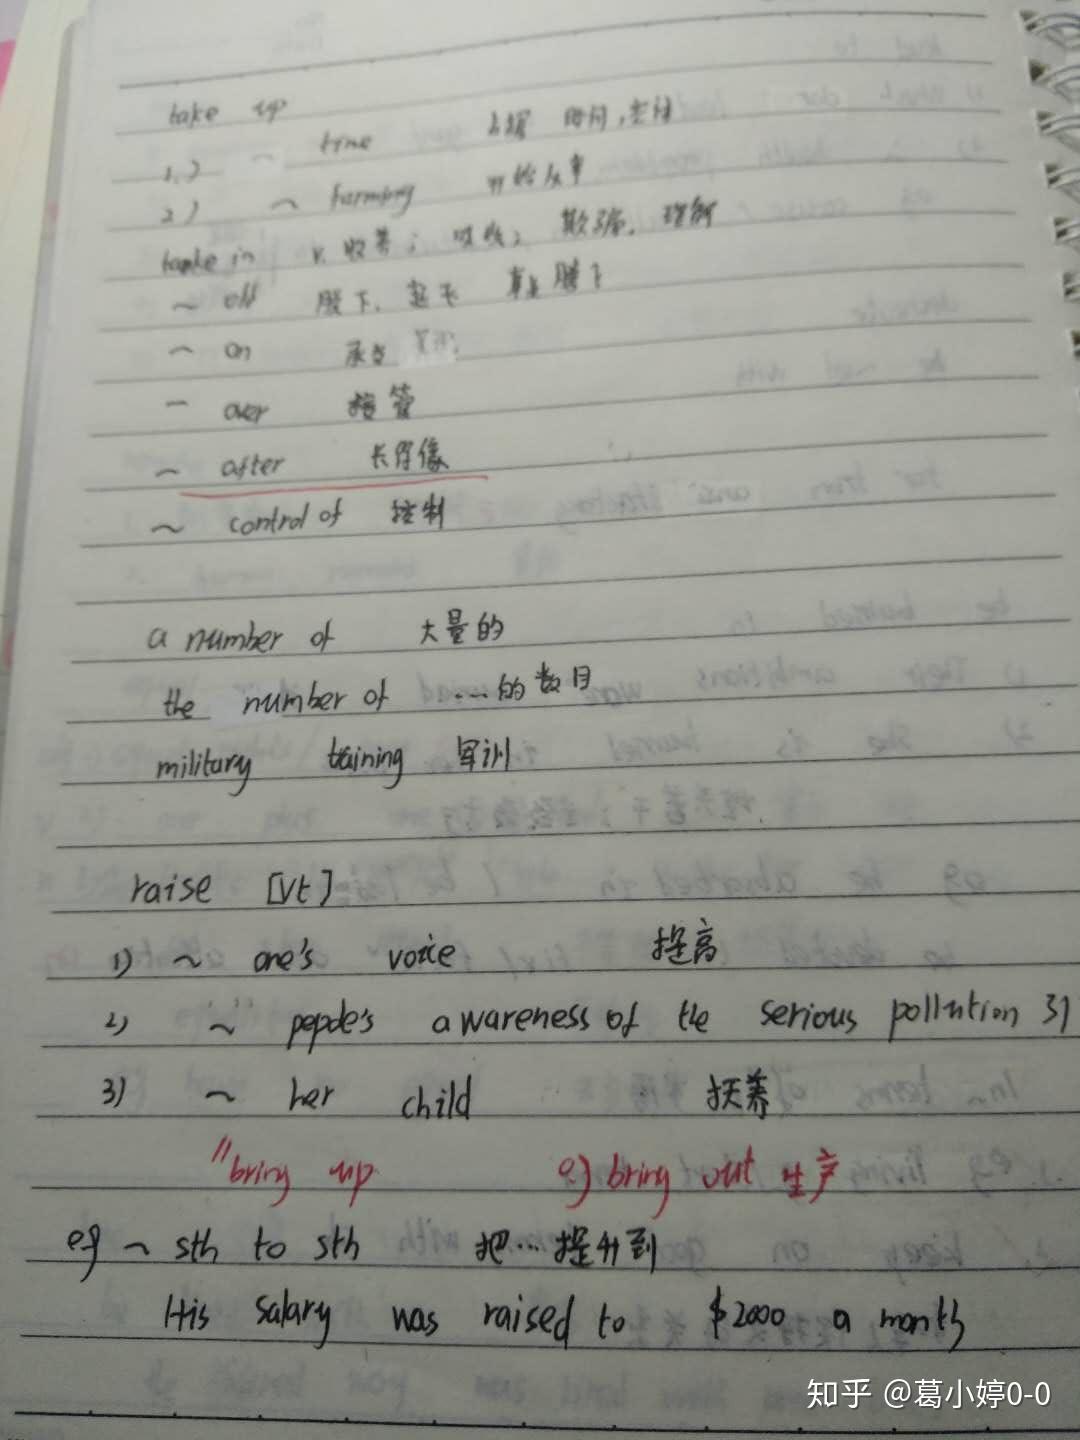 take up
1.) ~ time 占据 时间,空间
2) ~ farming 开始从事
take in v. 收养; 吸收; 欺骗. 理解
~ off 脱下. 起飞
~ on 承担
~ over 接管
~ after 长得像
~ control of 控制
a number of 大量的
the number of ...的数目
military taining 军训
raise [Vt]
1) ~ one's voice 提高
2) ~ pepole's awareness of the serious pollution 3)
3) ~ her child 抚养
"bring up bring out 生产
eg ~ sth to sth 把...提升到
His salary was raised to $2000 a month
知乎 @葛小婷0-0